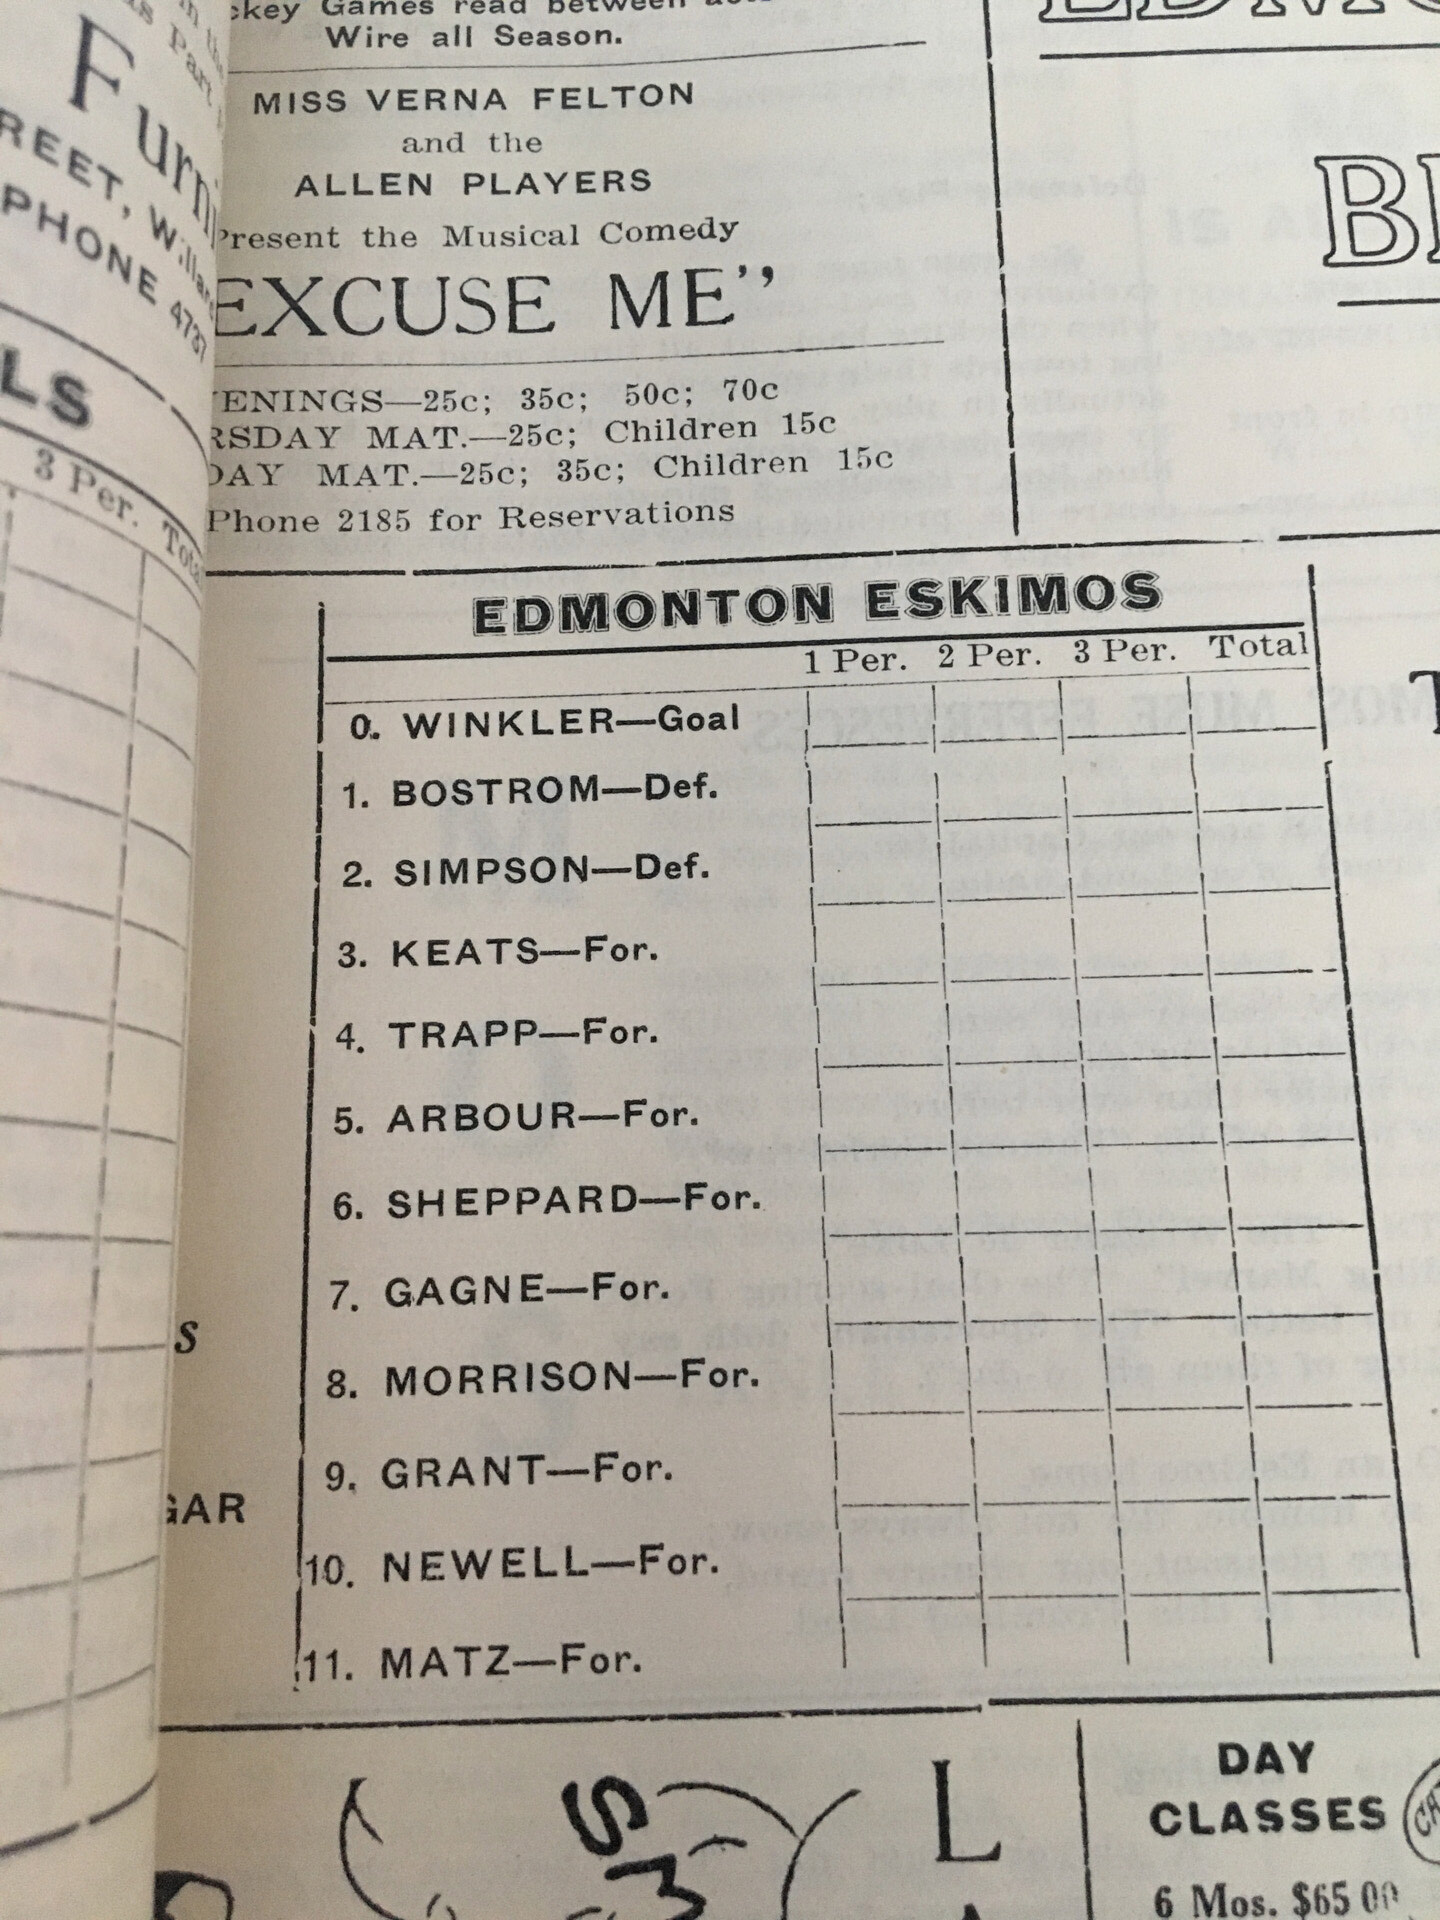 Games read between
Wire all Season.
MISS VERNA FELTON
and the
ALLEN PLAYERS
Present the Musical Comedy
EXCUSE ME"
ENINGS—25c; 35c; 50c; 70c
RSDAY MAT.—25c; Children 15c
DAY MAT.—25c; 35c; Children 15c
Phone 2185 for Reservations
REET, Willard
PHONE 4737
LS
3 Per. Total
EDMONTON ESKIMOS
1 Per. 2 Per. 3 Per. Total
0. WINKLER—Goal
1. BOSTROM—Def.
2. SIMPSON—Def.
3. KEATS—For.
4. TRAPP—For.
5. ARBOUR—For.
6. SHEPPARD—For.
7. GAGNE—For.
8. MORRISON—For.
9. GRANT—For.
10. NEWELL—For.
11. MATZ—For.
S
GAR
L
DAY
CLASSES
6 Mos. $65 00